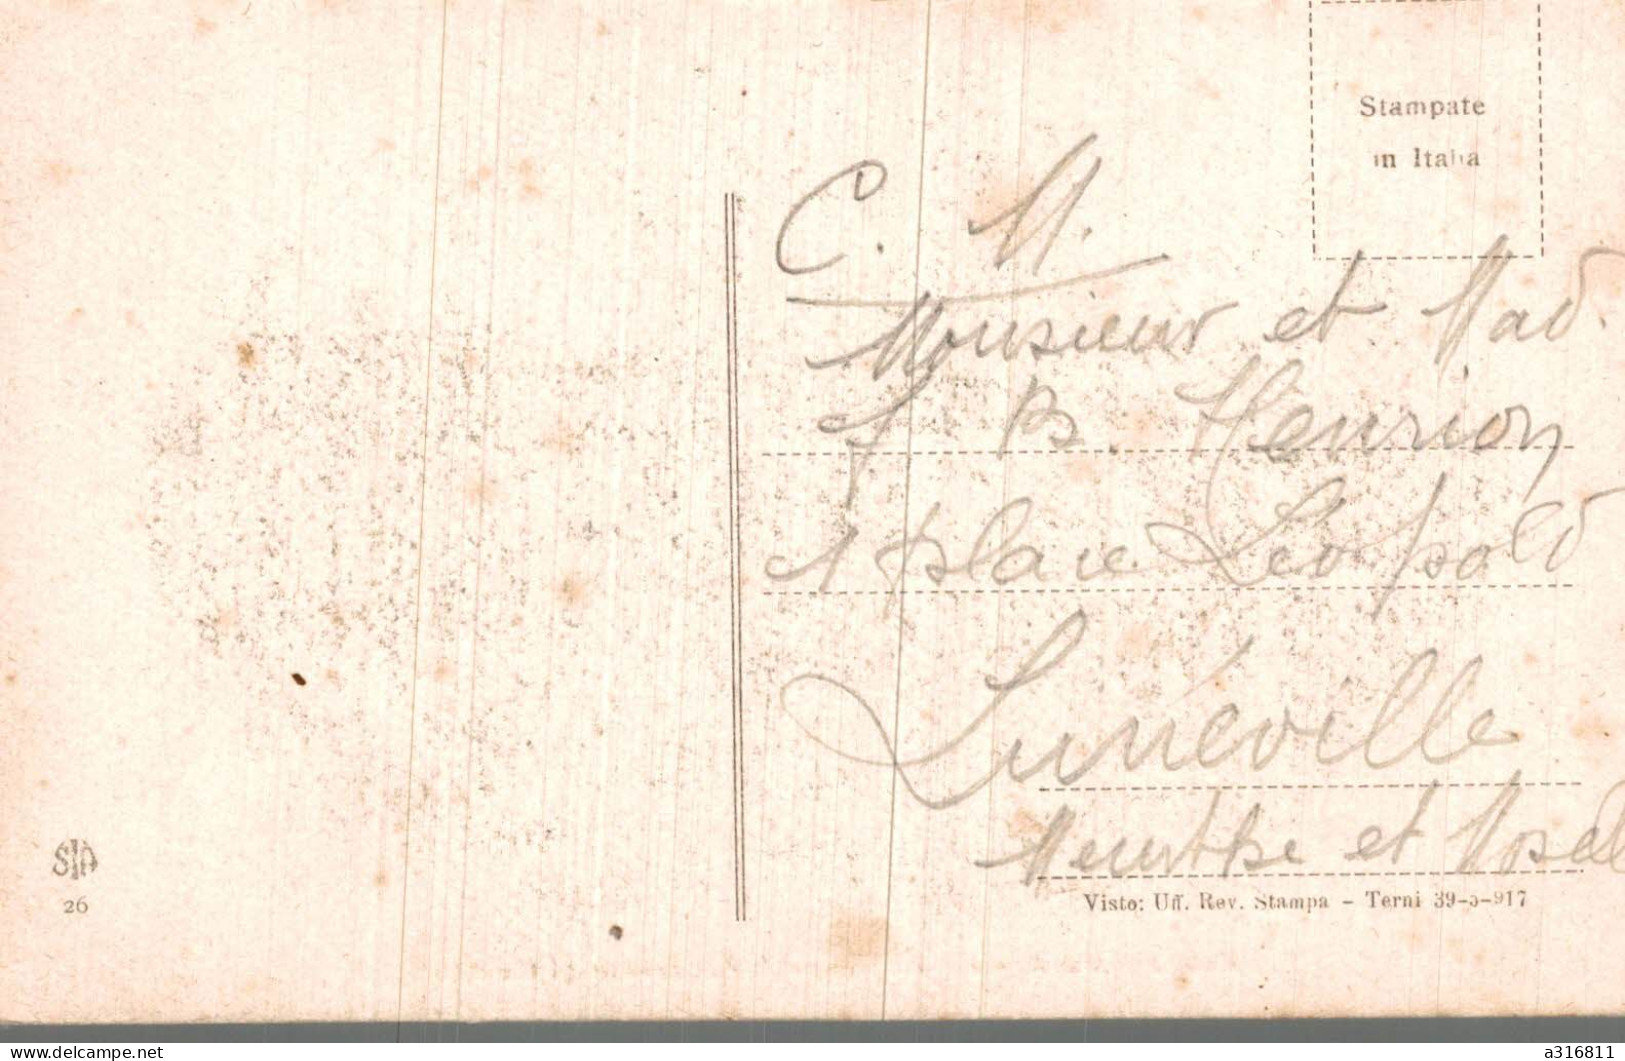 Stampate
in Italia
C. M.
Monsieur et Mad.
J B. Henrion
1 place Léopold
Lunéville
Meurthe et Mosel
SIA
26
Visto: Uff. Rev. Stampa - Terni 39-5-917
www.delcampe.net
a316811